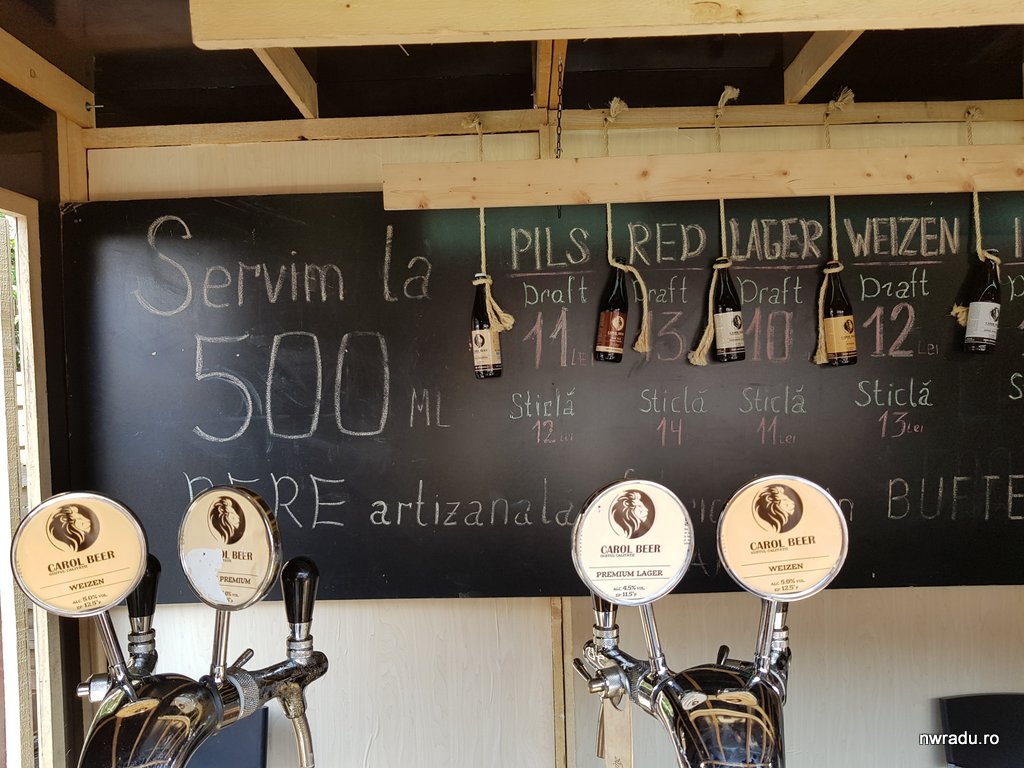 Servim la
500 ML
PILS RED LAGER WEIZEN
Draft Draft Draft Draft
11 Lei 13 10 12 Lei
Sticlă Sticlă Sticlă Sticlă
12 Lei 14 11 Lei 13 Lei
BERE artizanala
BUFTE
CAROL BEER
GUSTUL CALITĂȚII
WEIZEN
ALC 5.0% VOL
EP 12.5°P
OL BEER
PREMIUM
CAROL BEER
GUSTUL CALITĂȚII
PREMIUM LAGER
ALC 4.5% VOL
EP 11.5°P
CAROL BEER
GUSTUL CALITĂȚII
WEIZEN
ALC 5.0% VOL
EP 12.5°P
nwradu.ro